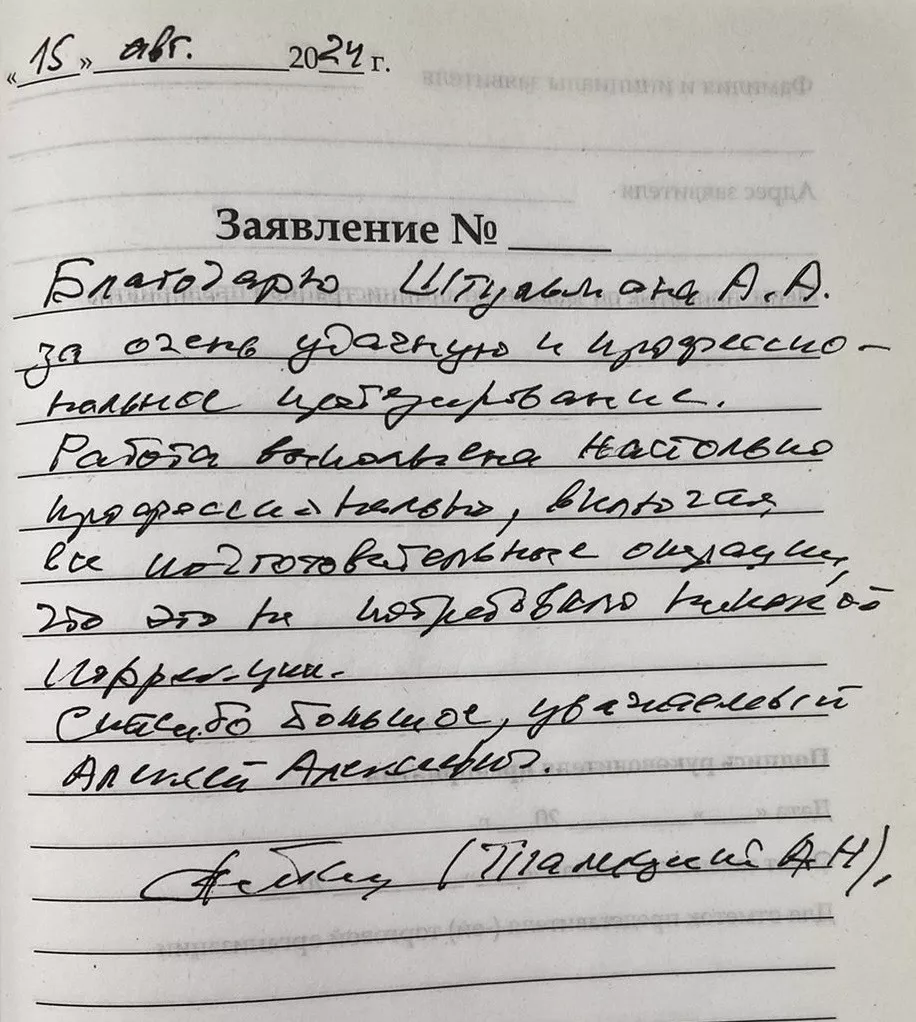 «15» авг. 2024 г.
Заявление №
Благодарю Штульмана А.А.
за очень удачную и профессио-
нальное протезирование.
Работа выполнена настолько
профессионально, включая
все подготовительные операции,
что это не потребовало никакой
коррекции.
Спасибо большое, уважаемый
Алексей Александрович.
(А.Н),